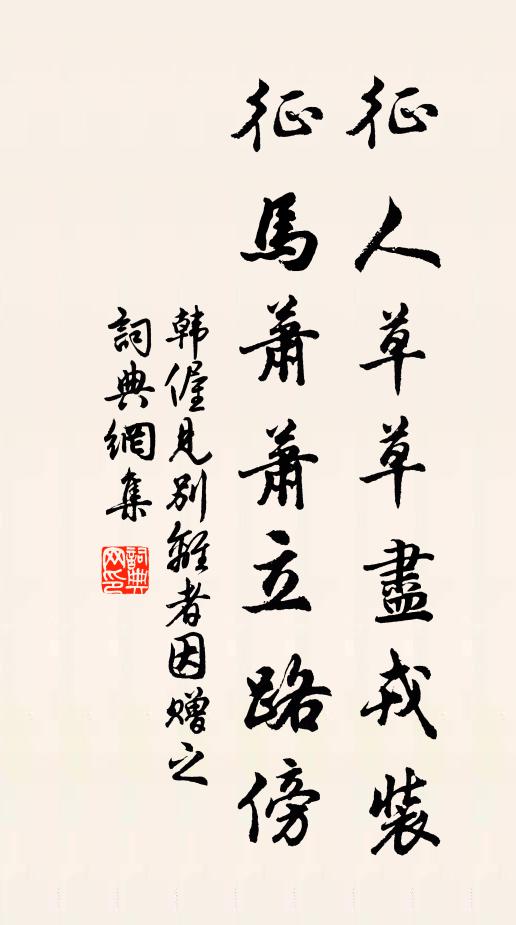 征人草草盡戎裝
征馬蕭蕭立路傍
韩偓見别離者因贈之
詞典網集
詞典网印